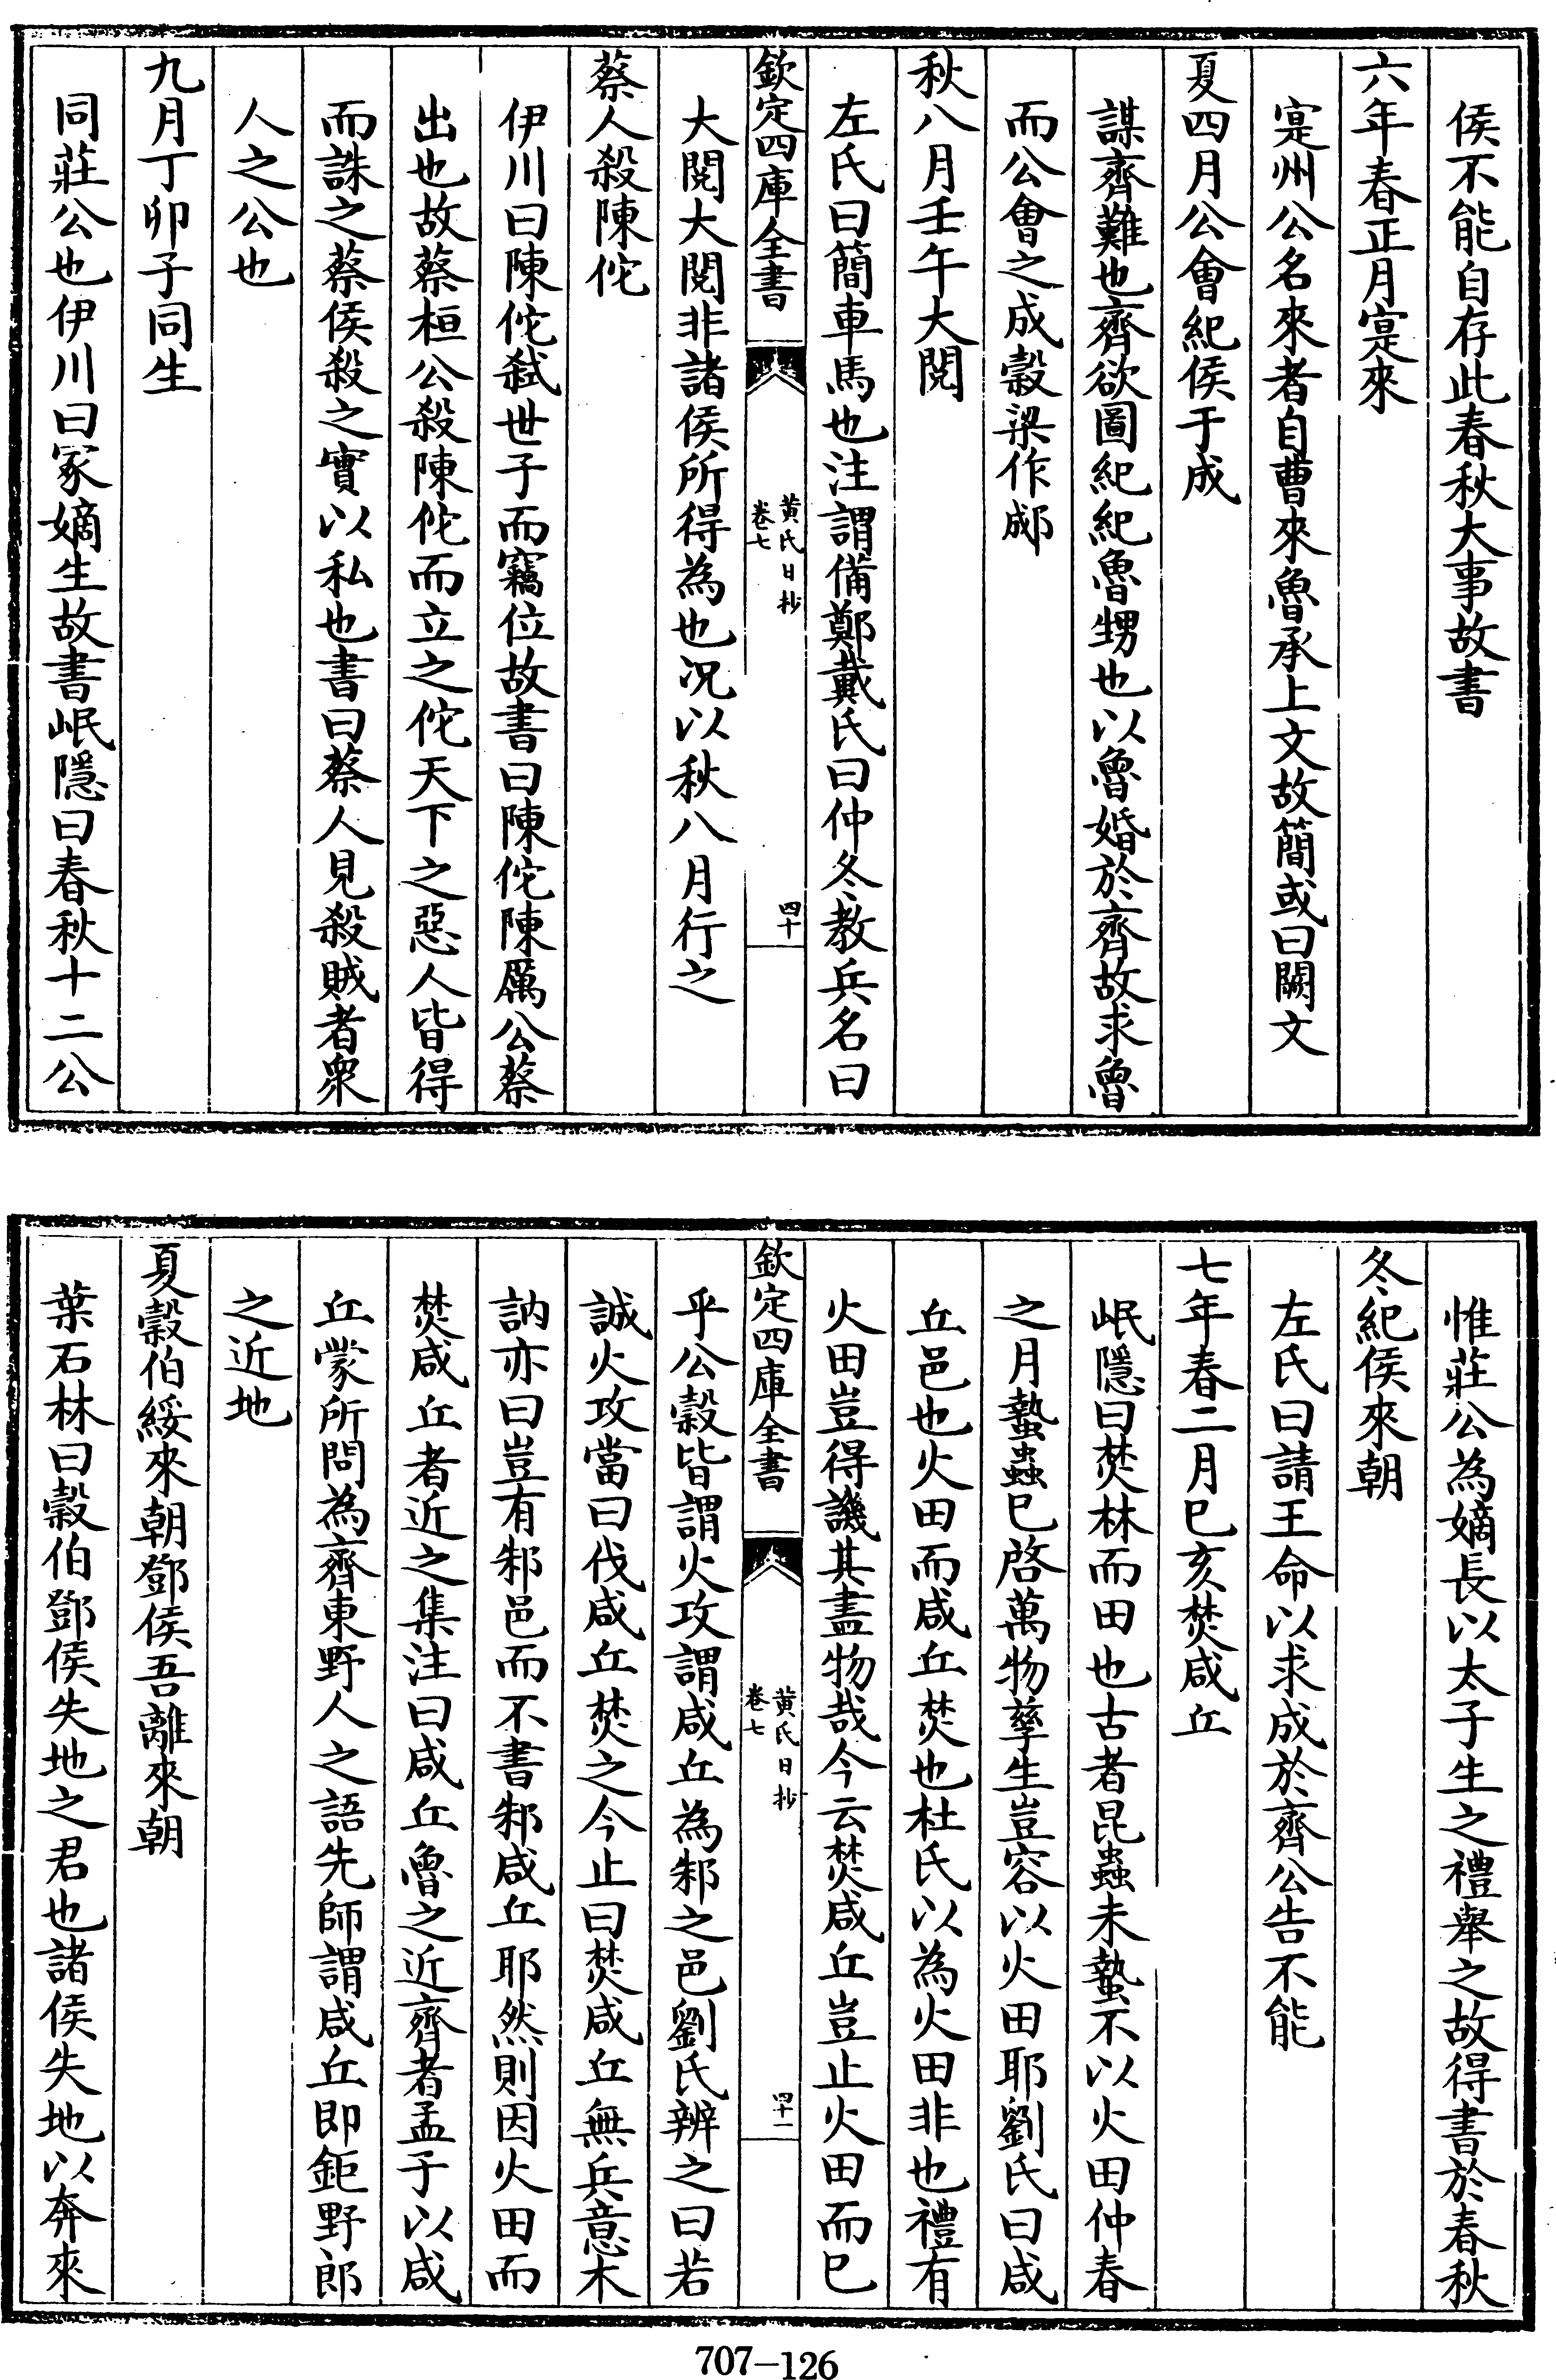 侯不能自存此春秋大事故書
六年春正月寔來
寔州公名來者自曹來魯承上文故簡或曰闕文
夏四月公會紀侯于成
謀齊難也齊欲圖紀紀魯甥也以魯婚於齊故求魯
而公會之成穀梁作郕
秋八月壬午大閱
左氏曰簡車馬也注謂備鄭戴氏曰仲冬教兵名曰
欽定四庫全書
黃氏日抄
卷七
四十
大閱大閱非諸侯所得為也况以秋八月行之
蔡人殺陳佗
伊川曰陳佗弑世子而竊位故書曰陳佗陳厲公蔡
出也故蔡桓公殺陳佗而立之佗天下之惡人皆得
而誅之蔡侯殺之實以私也書曰蔡人見殺賊者衆
人之公也
九月丁卯子同生
同莊公也伊川曰冡嫡生故書岷隱曰春秋十二公
惟莊公為嫡長以太子生之禮舉之故得書於春秋
冬紀侯來朝
左氏曰請王命以求成於齊公告不能
七年春二月巳亥焚咸丘
岷隱曰焚林而田也古者昆蟲未蟄不以火田仲春
之月蟄蟲巳啓萬物孳生豈容以火田耶劉氏曰咸
丘邑也火田而咸丘焚也杜氏以為火田非也禮有
火田豈得譏其盡物哉今云焚咸丘豈止火田而巳
欽定四庫全書
黃氏日抄
卷七
四十一
乎公穀皆謂火攻謂咸丘為邾之邑劉氏辨之曰若
誠火攻當曰伐咸丘焚之今止曰焚咸丘無兵意木
訥亦曰豈有邾邑而不書邾咸丘耶然則因火田而
焚咸丘者近之集注曰咸丘魯之近齊者孟子以咸
丘蒙所問為齊東野人之語先師謂咸丘即鉅野郎
之近地
夏穀伯綏來朝鄧侯吾離來朝
葉石林曰穀伯鄧侯失地之君也諸侯失地以奔來
707-126